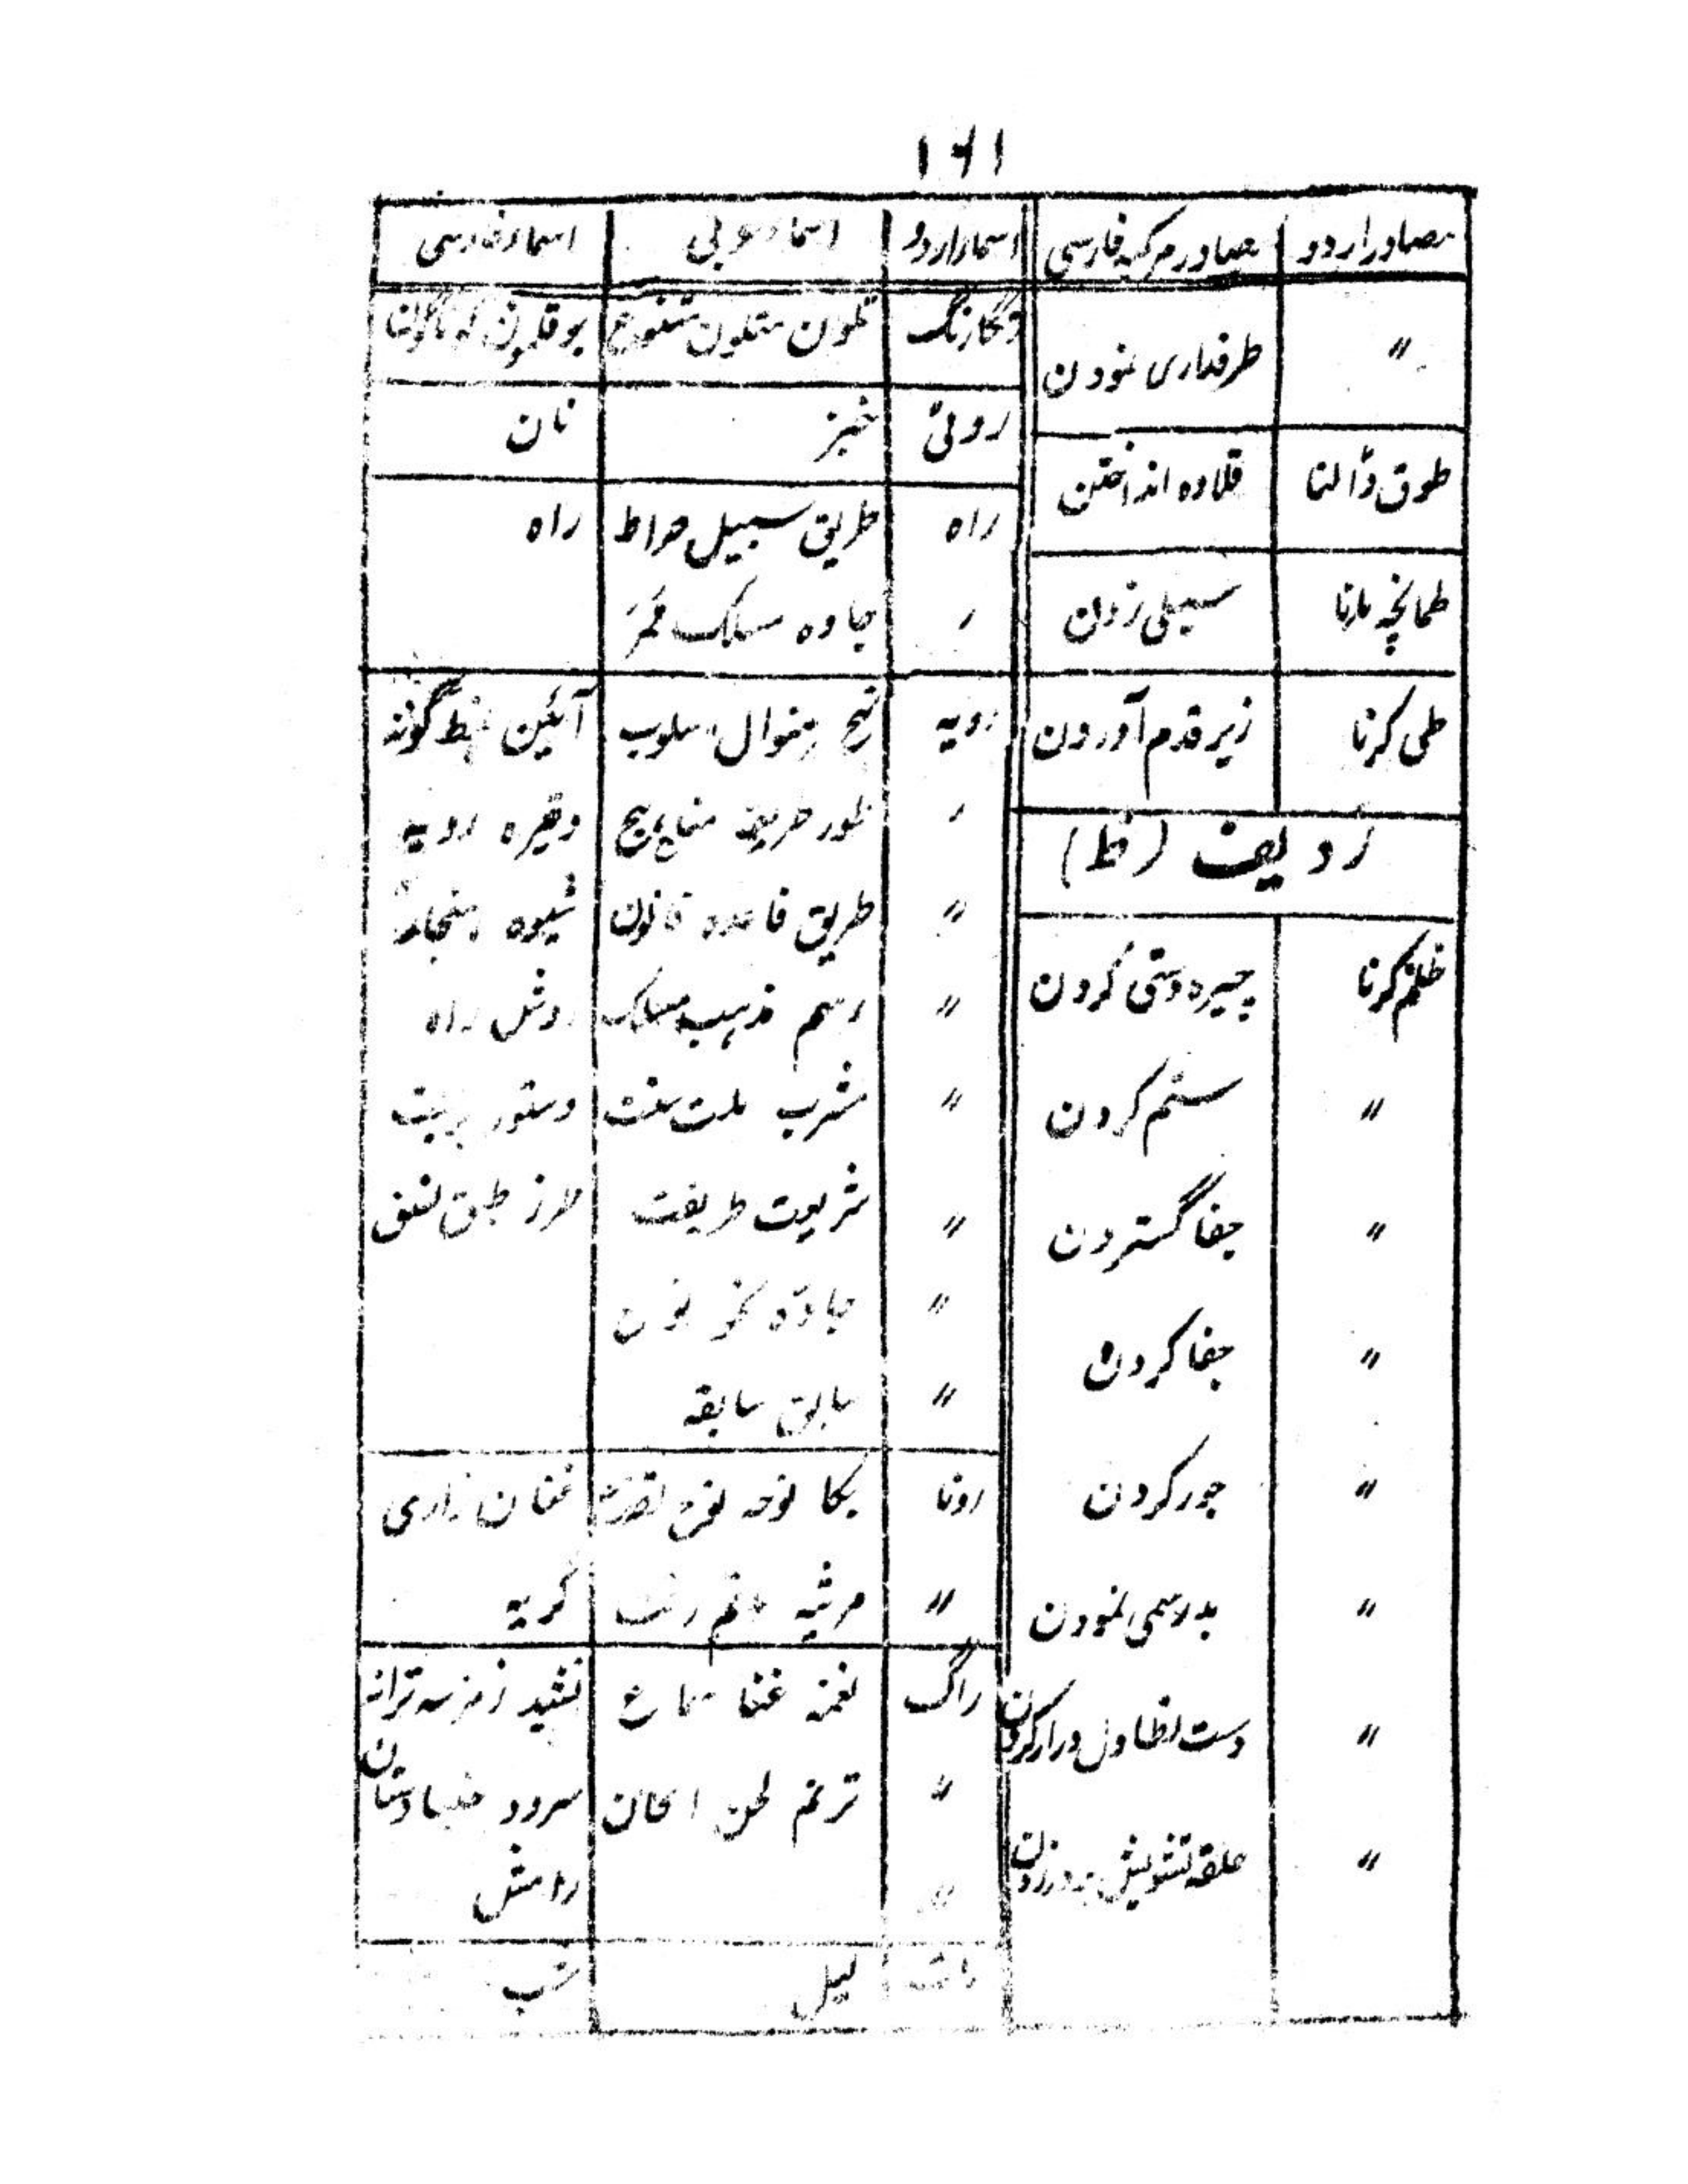 ۱۶۱
مصادر اردو | مصادر مرکبه فارسی
〃 | طرفداری نمودن
طوق ڈالنا | قلاده انداختن
طمانچہ مارنا | سیلی زدن
طی کرنا | زیر قدم آوردن
ردیف (ظ)
ظلم کرنا | چیره دستی کردن
〃 | ستم کردن
〃 | جفا گستردن
〃 | جفا کردن
〃 | جور کردن
〃 | بدرسمی نمودن
〃 | دست تطاول دراز کردن
〃 | حلقه تشویش بر در زدن
اسماء اردو | اسماء عربی | اسماء فارسی
رنگارنگ | تلون متلون متنوع | بوقلمون گوناگون
روٹی | خبز | نان
راه | طریق سبیل صراط | راه
〃 | جاده مسلک ممر
رویہ | نهج منوال اسلوب | آئین نمط گونه
〃 | طور طریقه منهاج | وتیره رویه
〃 | طریق قاعده قانون | شیوه هنجار
〃 | رسم مذهب مسلک | روش راه
〃 | مشرب ملت سنت | دستور
〃 | شریعت طریقت | طرز طبق نسق
〃 | جاده نحو
〃 | سابق سابقه
رونا | بکا نوحه | فغان زاری
〃 | مرثیه ماتم | گریه
راگ | نغمه غنا سماع | نشید زمزمه ترانه
〃 | ترنم لحن الحان | سرود
〃 | رامش
رات | لیل | شب